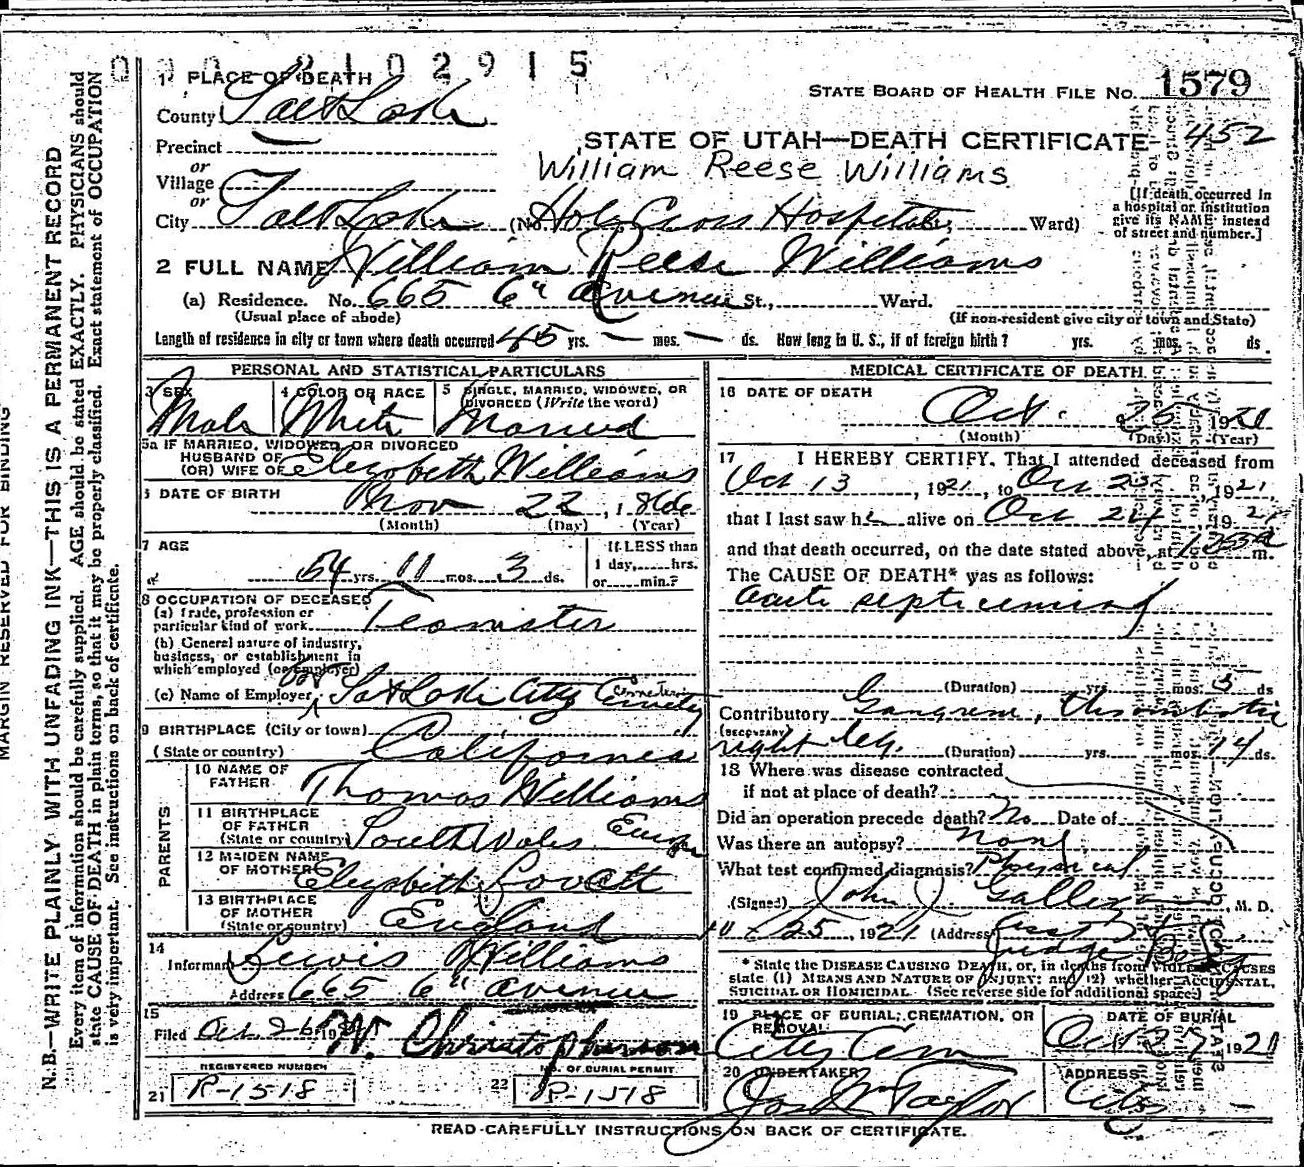 0002102915
1 PLACE OF DEATH
STATE BOARD OF HEALTH FILE No. 1579
County Salt Lake
STATE OF UTAH—DEATH CERTIFICATE 452
Precinct
William Reese Williams
or
Village
or
City Salt Lake (No. Holy Cross Hospital St.; Ward)
[If death occurred in
a hospital or institution
give its NAME instead
of street and number.]
2 FULL NAME William Reese Williams
(a) Residence. No. 665 6th Avenue St., Ward.
(Usual place of abode) (If non-resident give city or town and State)
Length of residence in city or town where death occurred 45 yrs. — mos. — ds. How long in U. S., if of foreign birth? yrs. mos. ds.
PERSONAL AND STATISTICAL PARTICULARS
3 SEX 4 COLOR OR RACE 5 SINGLE, MARRIED, WIDOWED, OR
DIVORCED (Write the word)
Male White Married
5a IF MARRIED, WIDOWED, OR DIVORCED
HUSBAND OF
(OR) WIFE OF Elizabeth Williams
6 DATE OF BIRTH Nov 22, 1866
(Month) (Day) (Year)
7 AGE If LESS than
54 yrs. 11 mos. 3 ds. 1 day, hrs.
or min.?
8 OCCUPATION OF DECEASED
(a) Trade, profession or
particular kind of work Teamster
(b) General nature of industry,
business, or establishment in
which employed (or employer)
for
(c) Name of Employer Salt Lake City Cemetery
9 BIRTHPLACE (City or town)
(State or country) California
PARENTS
10 NAME OF
FATHER Thomas Williams
11 BIRTHPLACE
OF FATHER
(State or country) South Wales
12 MAIDEN NAME
OF MOTHER Elizabeth Lovett
13 BIRTHPLACE
OF MOTHER
(State or country) England
14
Informant Lewis Williams
Address 665 6th Avenue
15
Filed Oct. 26, 19 W. Christopherson
REGISTERED NUMBER No. OF BURIAL PERMIT
21 R-1518 22 R-1518
MEDICAL CERTIFICATE OF DEATH
16 DATE OF DEATH
Oct. 25 1921
(Month) (Day) (Year)
17 I HEREBY CERTIFY, That I attended deceased from
Oct 13, 1921, to Oct 25, 1921,
that I last saw h alive on Oct 24, 1921
and that death occurred, on the date stated above, at m.
The CAUSE OF DEATH* was as follows:
Acute septicemia
(Duration) yrs. mos. 5 ds
Contributory Gangrene, thrombotic
(SECONDARY)
right leg. (Duration) yrs. mos. 14 ds.
18 Where was disease contracted
if not at place of death?
Did an operation precede death? No Date of
Was there an autopsy? None
What test confirmed diagnosis? Physical
(Signed) John J. Galligan, M. D.
10/25, 1921 (Address)
Judge Bldg
* State the DISEASE CAUSING DEATH, or, in deaths from VIOLENT CAUSES
state (1) MEANS AND NATURE OF INJURY; and (2) whether ACCIDENTAL,
SUICIDAL OR HOMICIDAL. (See reverse side for additional space.)
19 PLACE OF BURIAL, CREMATION, OR
REMOVAL DATE OF BURIAL
City Cem Oct 27 1921
20 UNDERTAKER ADDRESS
Jos Wm Taylor City
READ CAREFULLY INSTRUCTIONS ON BACK OF CERTIFICATE.
MARGIN RESERVED FOR BINDING
N.B.—WRITE PLAINLY WITH UNFADING INK—THIS IS A PERMANENT RECORD
Every item of information should be carefully supplied. AGE should be stated EXACTLY. PHYSICIANS should
state CAUSE OF DEATH in plain terms, so that it may be properly classified. Exact statement of OCCUPATION
is very important. See instructions on back of certificate.